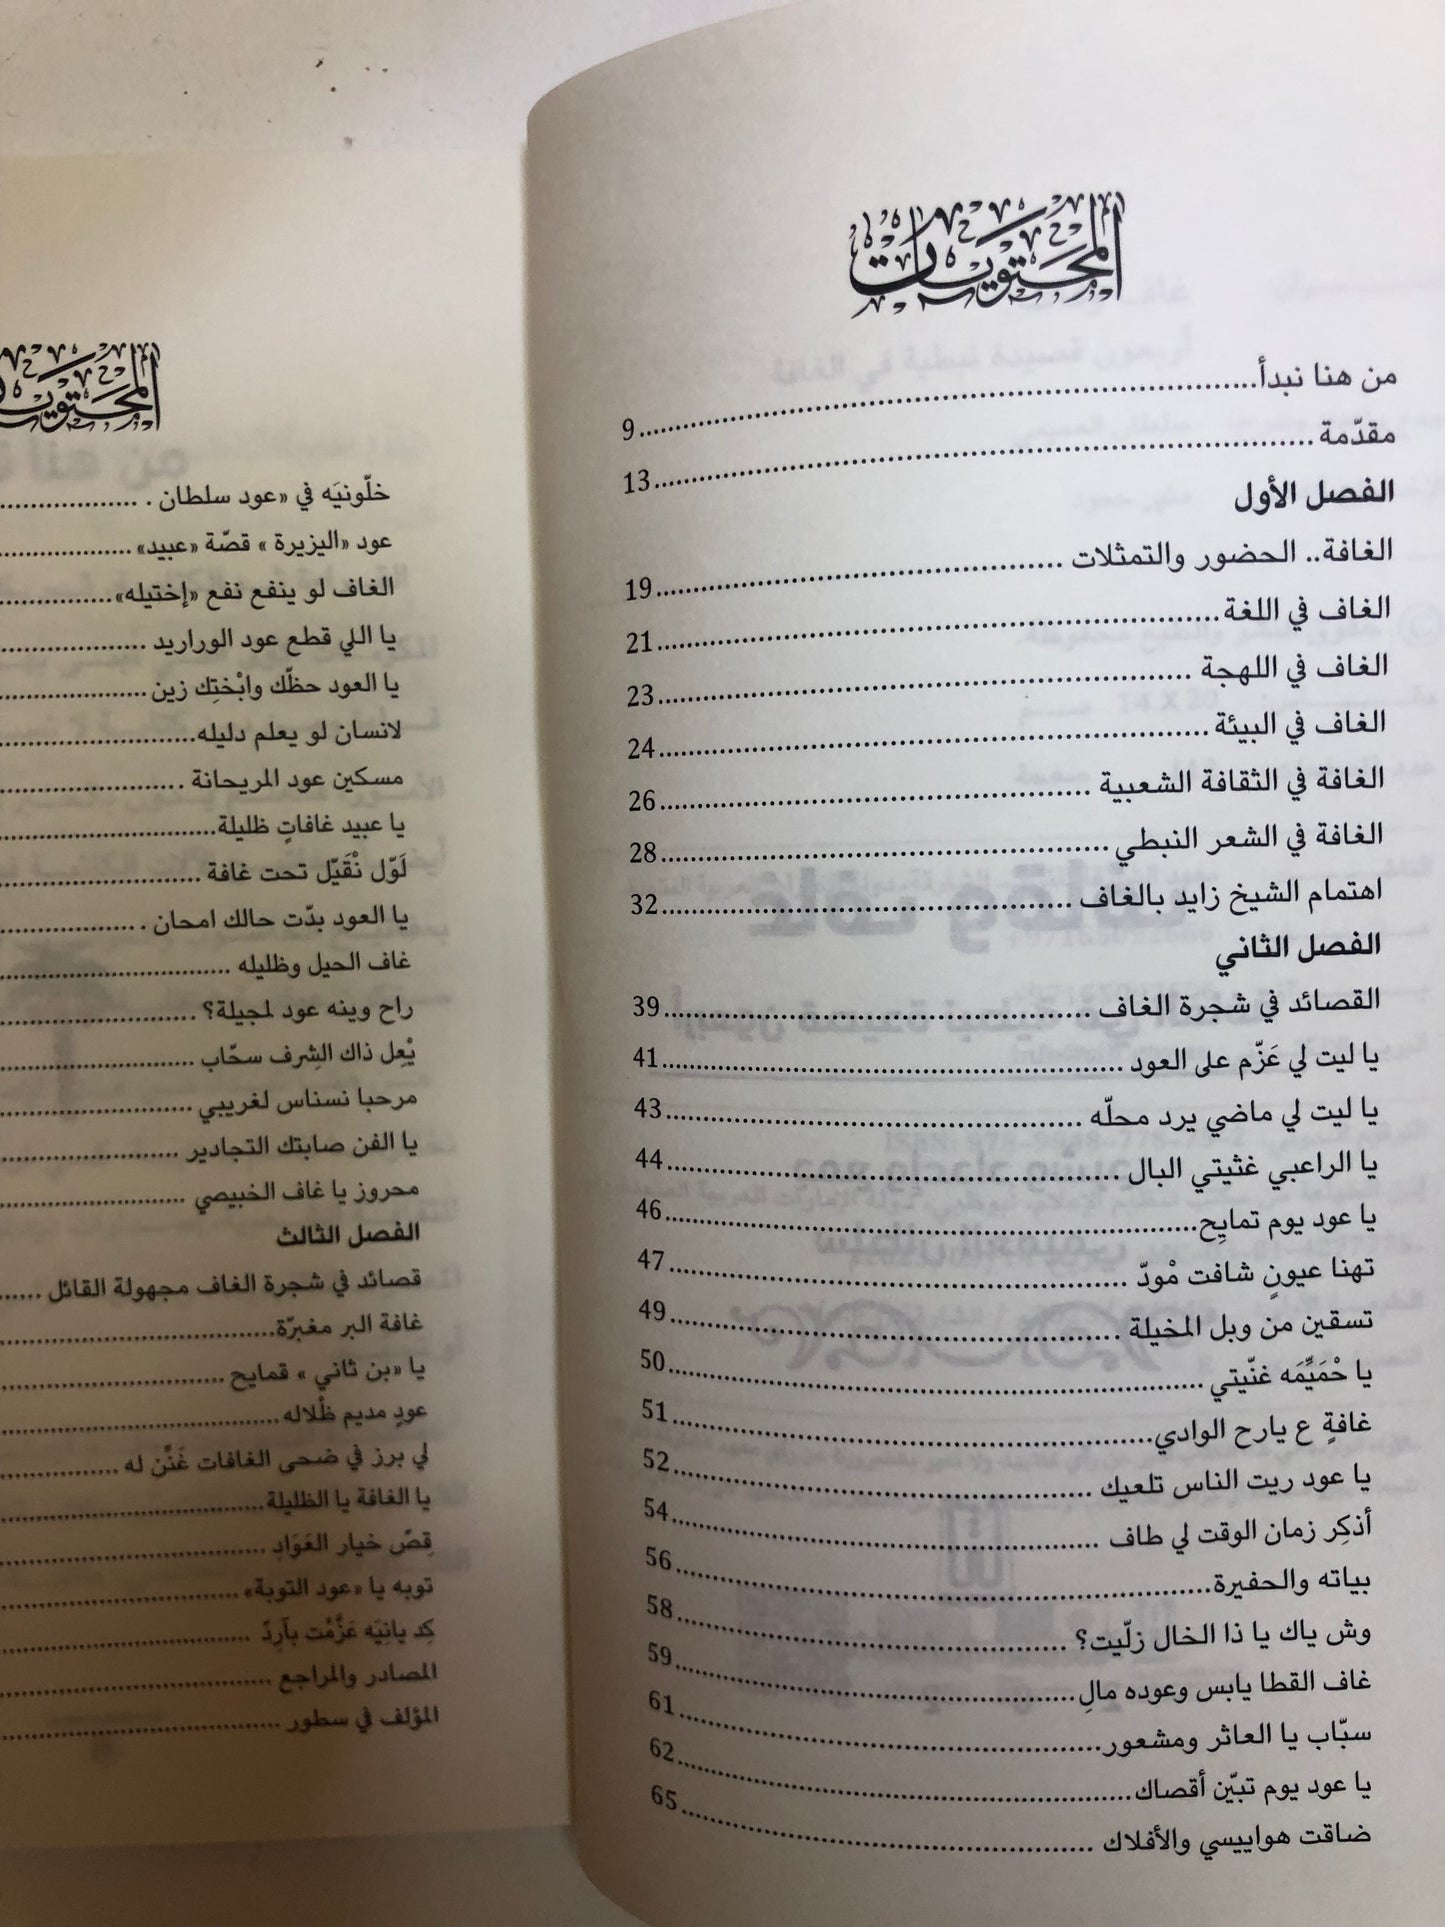 المحتويات
من هنا نبدأ............9
مقدّمة............13
الفصل الأول
الغافة.. الحضور والتمثلات............19
الغاف في اللغة............21
الغاف في اللهجة............23
الغاف في البيئة............24
الغافة في الثقافة الشعبية............26
الغافة في الشعر النبطي............28
اهتمام الشيخ زايد بالغاف............32
الفصل الثاني
القصائد في شجرة الغاف............39
يا ليت لي عَزّم على العود............41
يا ليت لي ماضي يرد محلّه............43
يا الراعبي غثيتي البال............44
يا عود يوم تمايِح............46
تهنا عيونٍ شافت مْودّ............47
تسقين من وبل المخيلة............49
يا حْمَيِّمَه غنّيتي............50
غافةٍ ع يارح الوادي............51
يا عود ريت الناس تلعيك............52
أذكِر زمان الوقت لي طاف............54
بياته والحفيرة............56
وش ياك يا ذا الخال زلّيت؟............58
غاف القطا يابس وعوده مالِ............59
سبّاب يا العاثر ومشعور............61
يا عود يوم تبيّن أقصاك............62
ضاقت هواييسي والأفلاك............65
المحتويات
خلّونيَه في «عود سلطان............
عود «اليزيرة» قصّة «عبيد»............
الغاف لو ينفع نفع «إختيله»............
يا اللي قطع عود الوراريد............
يا العود حظّك وابْختِك زين............
لانسان لو يعلم دليله............
مسكين عود المريحانة............
يا عبيد غافاتٍ ظليلة............
لَوّل نْقَيّل تحت غافة............
يا العود بدّت حالك امحان............
غاف الحيل وظليله............
راح وينه عود لمجيلة؟............
يْعِل ذاك الشِرف سحّاب............
مرحبا نسناس لغريبي............
يا الفن صابتك التجادير............
محروز يا غاف الخبيصي............
الفصل الثالث
قصائد في شجرة الغاف مجهولة القائل............
غافة البر مغبرّة............
يا «بن ثاني» قمايح............
عودٍ مديم ظْلاله............
لي برز في ضحى الغافات غَنِّن له............
يا الغافة يا الظليلة............
قِصّ خيار العَوَادِ............
توبه يا «عود التوبة»............
كِد يانِيَه عَزَّمْت بآرِدّ............
المصادر والمراجع............
المؤلف في سطور............